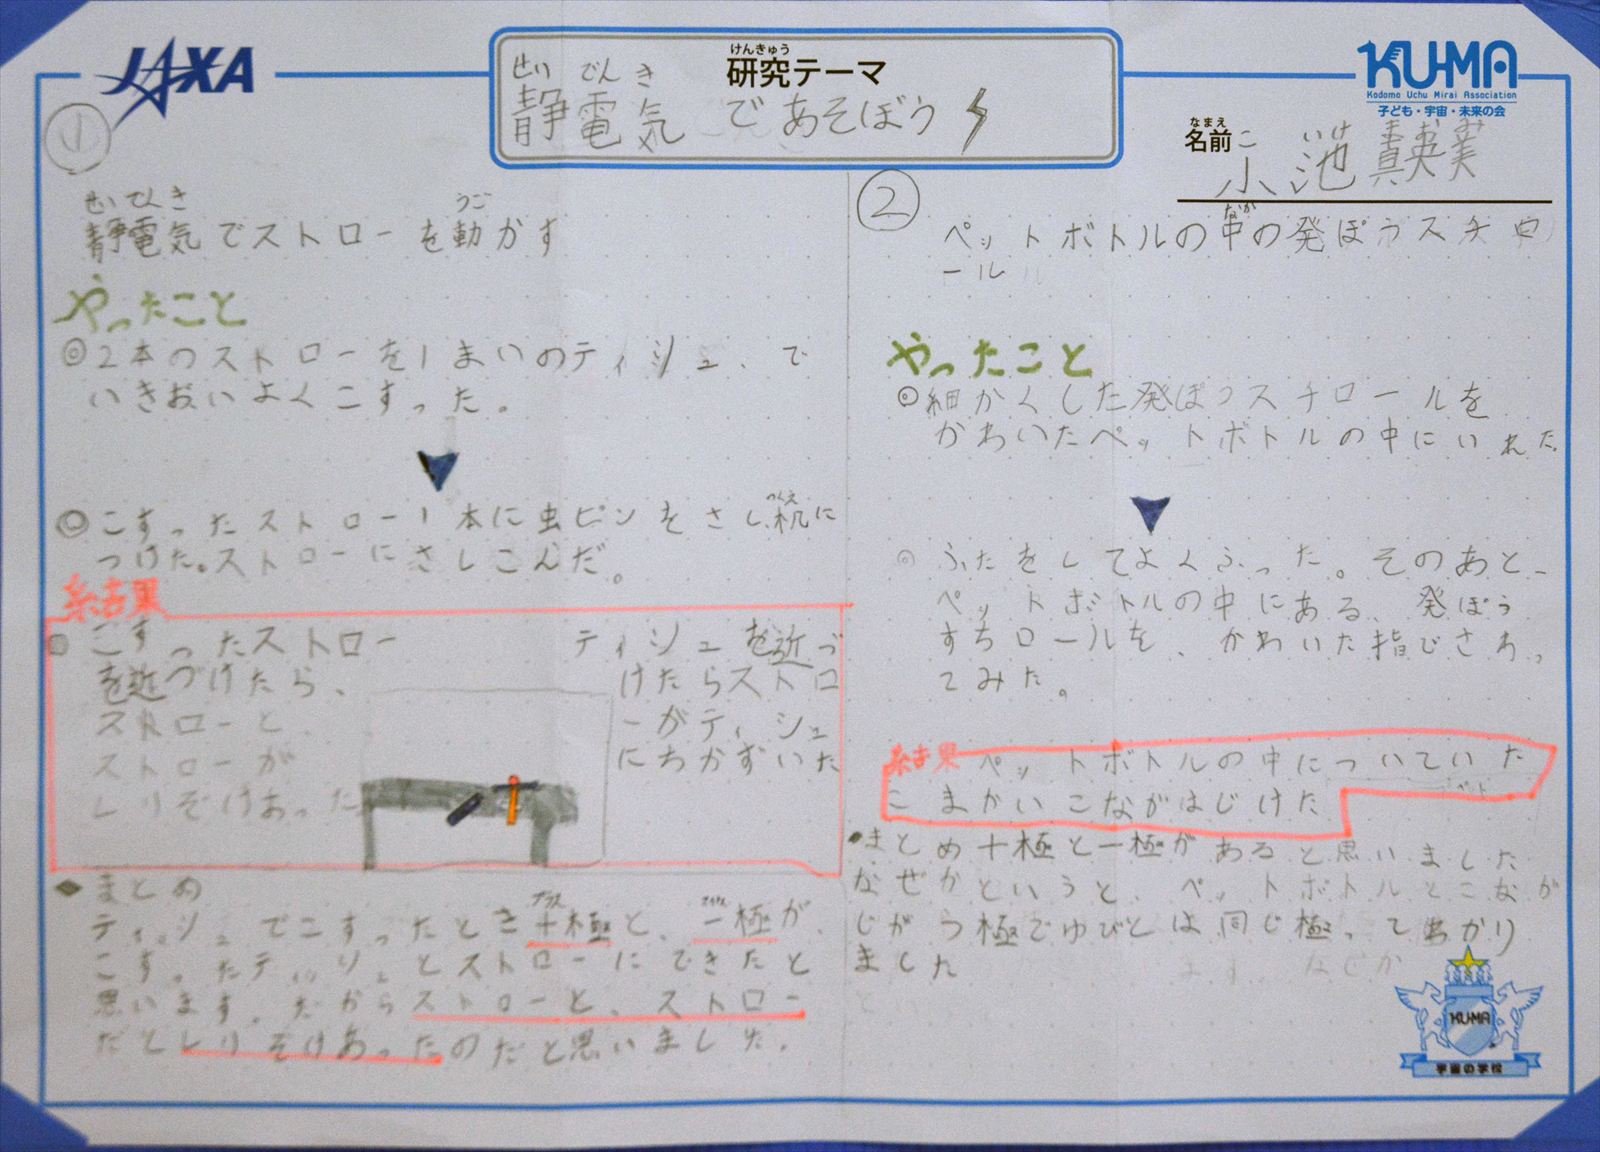 JAXA
けんきゅう
研究テーマ
せい でん き
静電気であそぼう
KU-MA
Kodomo Uchu Mirai Association
子ども・宇宙・未来の会
なまえ
名前
こ いけ まおみ
小池真英美
①
せい でん き うご
静電気でストローを動かす
やったこと
◎2本のストローを1まいのティシュ、で
いきおいよくこすった。
◎こすったストロー1本に虫ピンをさし、机に
つくえ
つけた。ストローにさしこんだ。
結果
こすったストロー
を近づけたら、
ストローと、
ストローが
しりぞけあった
ティシュを近づ
けたらストロ
ーがティシュ
にちかずいた
◆まとめ
ティシュでこすったとき+極と、-極が、
プラス
こすったティッシュとストローにできたと
思います。だからストローと、ストロー
だとしりぞけあったのだと思いました。
②
なか
ペットボトルの中の発ぽうスチロ
ール
やったこと
◎細かくした発ぽうスチロールを
かわいたペットボトルの中にいれた
◎ふたをしてよくふった。そのあと、
ペットボトルの中にある、発ぽう
すちロールを、かわいた指でさわっ
てみた。
結果 ペットボトルの中についていた
こまかいこながはじけた
まとめ+極と-極があると思いました
なぜかというと、ペットボトルとこなが
じがう極でゆびとは同じ極ってわかり
ました
KU-MA
宇宙の学校